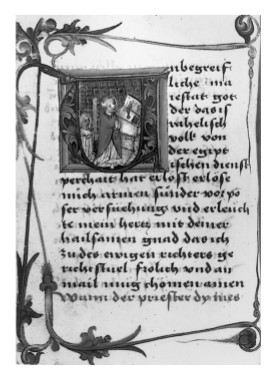 Unbegreif
liche ma
iestat got
der das is
rahelisch
volk von
der egipt
ischen dienst
perchait hat erlost erlose
mich armen sunder vor po
ser versuchung und erleuch
te mein hertz mit deiner
hailsamen gnad das ich
zu des ewigen richters ge
richt stuel frolich und an
mail mug chomen amen
Wann der priester dy